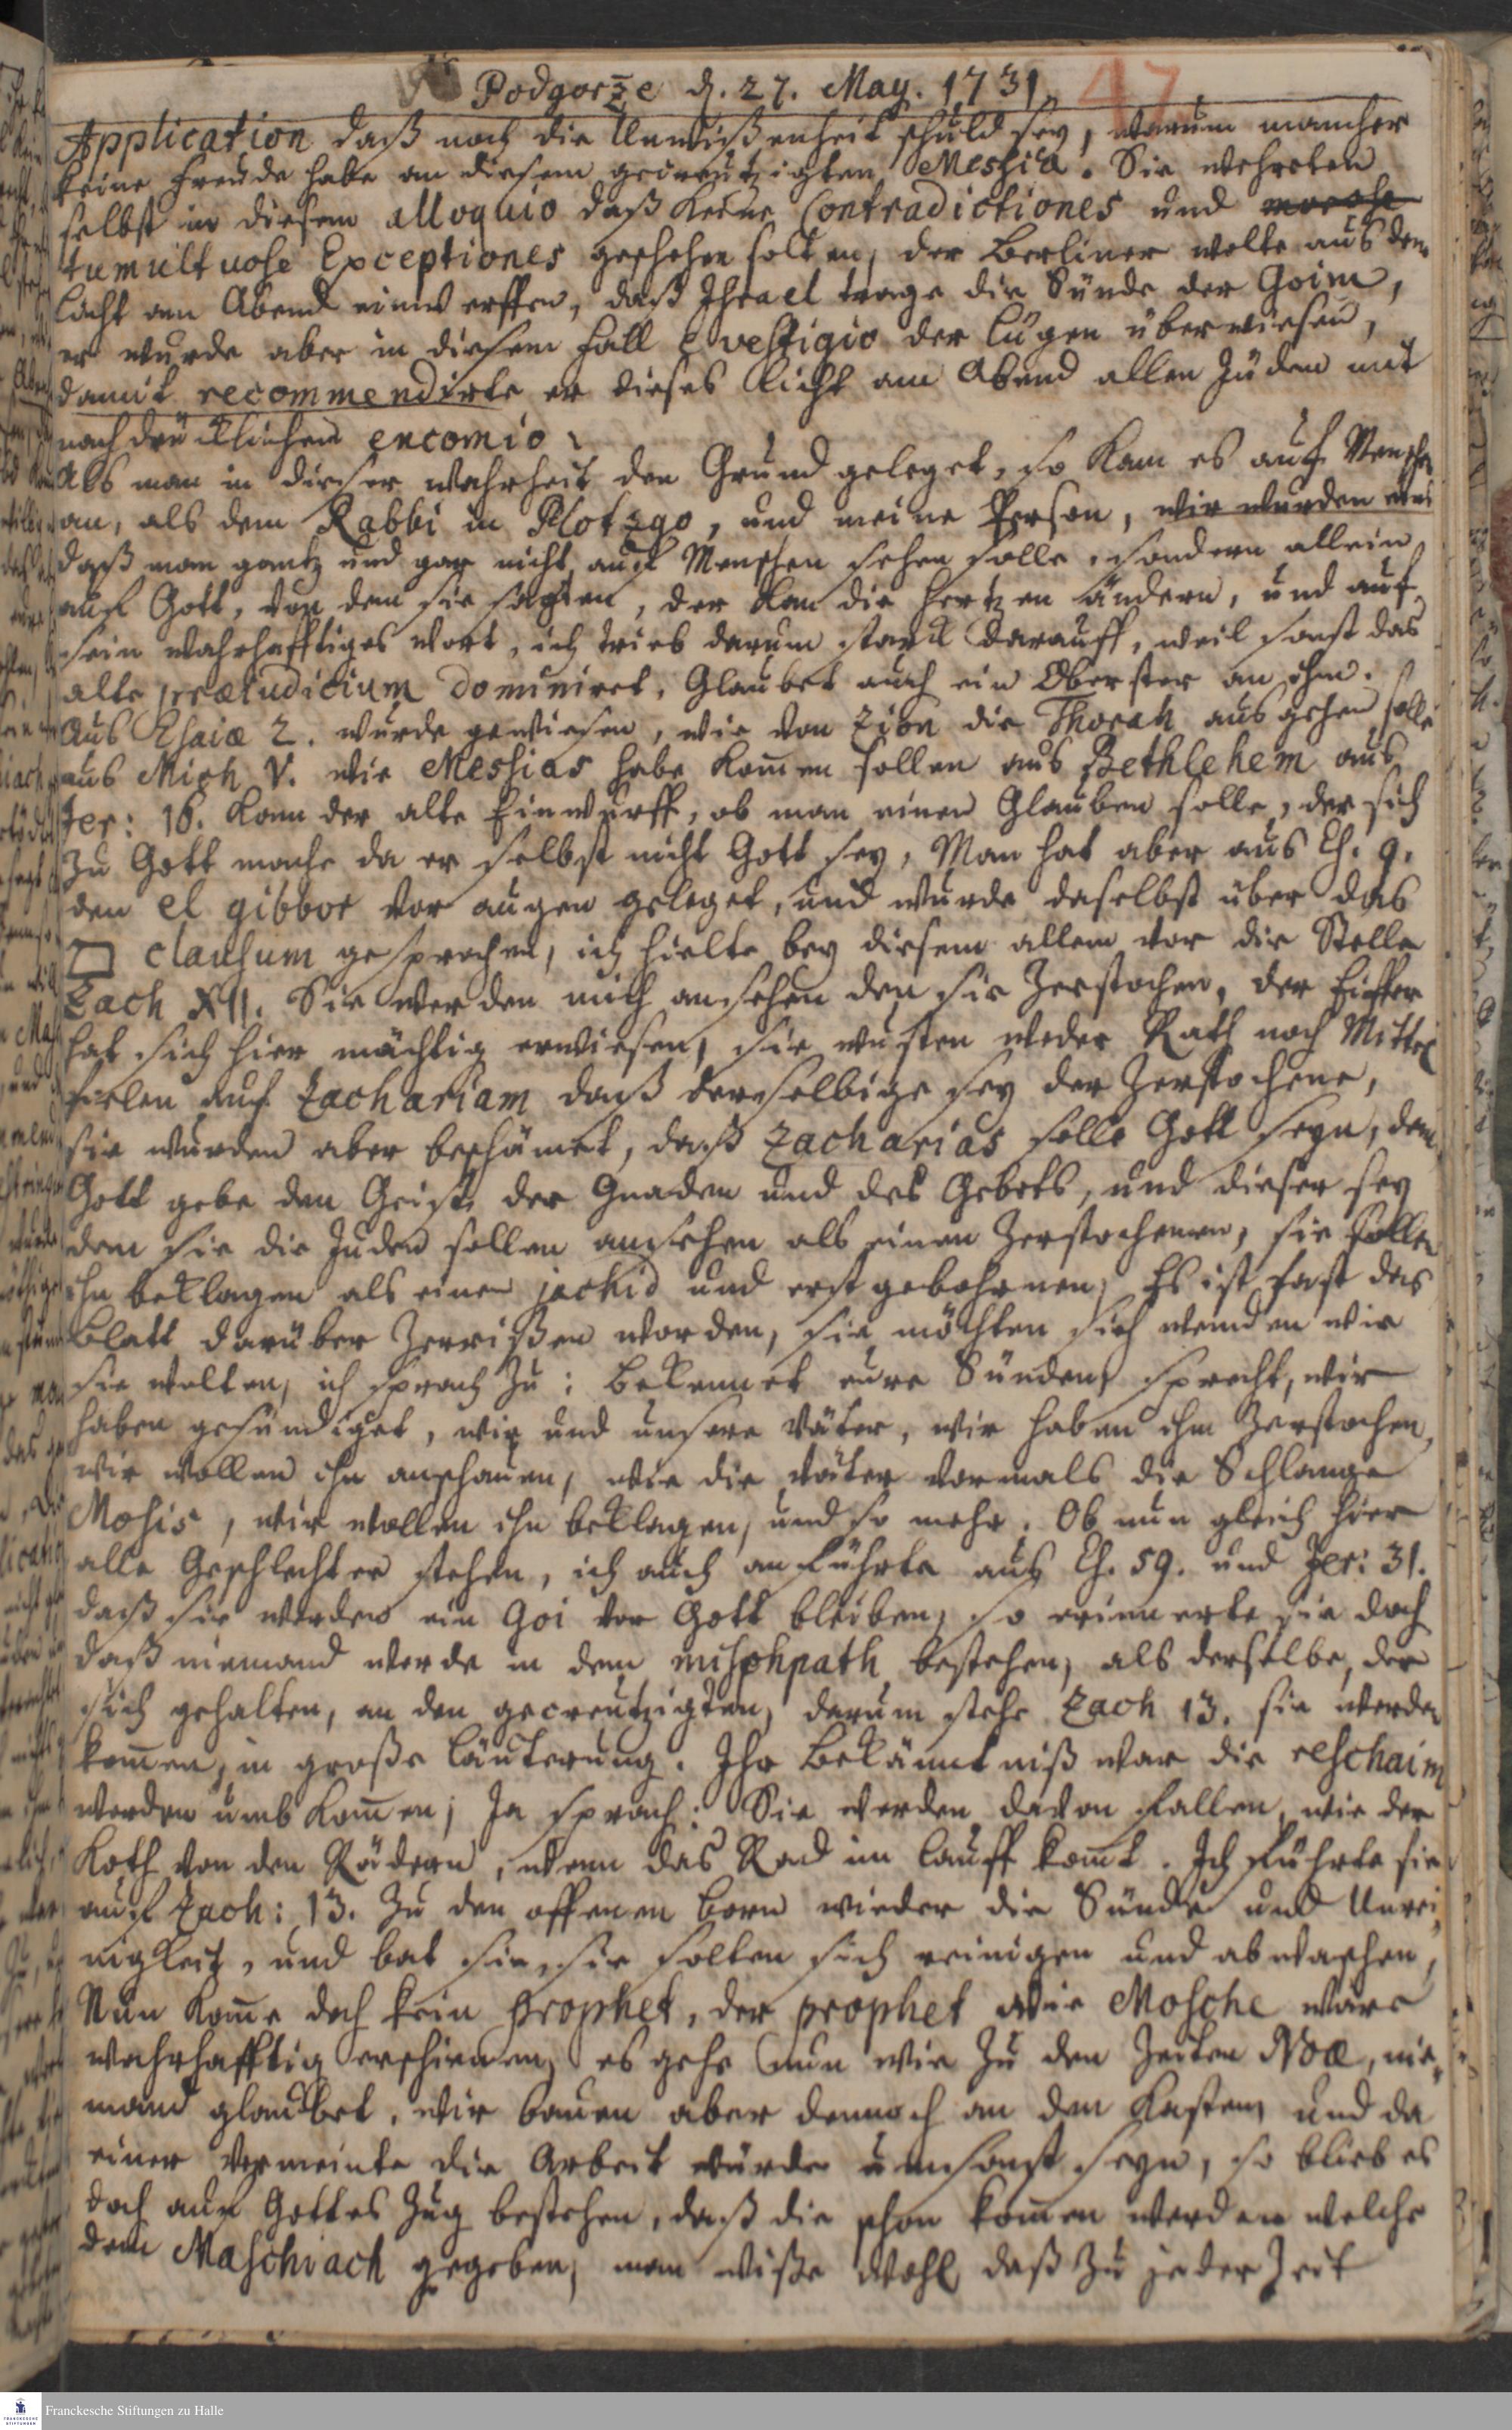 Podgorze d. 27. May. 1731.
47
Application daß noch die Unwißenheit schuld sey, warum mancher
keine Freude habe an diesem gecreutzigten Messia. Sie wehreten
selbst in diesem alloquio daß keine Contradictiones und
tumultuose Exceptiones geschehen solten, der Berliner wolte aus dem
licht am Abend einwerffen, daß Israel trage die Sünde der Goim,
er wurde aber in diesem fall e vestigio der lügen überwiesen,
damit recommendirte er dieses Licht am Abend allen Juden mit
nachdrücklichem encomio.
Als man in dieser wahrheit den Grund geleget, so kam es auf Menschen
an, als dem Rabbi in Plotzgo, und meine Person, wir wurden eins
daß man gantz und gar nicht auf Menschen sehen solle, sondern allein
auf Gott, von dem sie sagten, der kan die hertzen ändern, und auf
sein wahrhafftiges wort, ich trieb darum starck darauff, weil sonst das
alte præiudicium dominiret, Glaubet auch ein Oberster an ihm.
Aus Esaiæ 2. wurde gewiesen, wie von Zion die Thorah ausgehen solle
aus Mich V. wie Messias habe kom̄en sollen aus Bethlehem aus
Jer: 16. kam der alte Einwurff, ob man einen Glauben solle, der sich
zu Gott mache da er selbst nicht Gott sey, Man hat aber aus Es. 9.
den el gibbor vor augen geleget, und wurde daselbst über das
ם clausum gesprochen, ich hielte bey diesem allem vor die Stelle
Zach XII. Sie werden mich ansehen den sie zerstochen, der Eiffer
hat sich hier mächtig erwiesen, sie wusten weder Rath noch Mittel
fielen auf Zachariam daß derselbige sey der zerstochene,
sie wurden aber beschämet, daß Zacharias solle Gott seyn, denn
Gott gebe den Geist der Gnaden und des Gebets, und dieser sey
dem sie die Juden sollen ansehen als einen zerstochenen, sie sollen
ihn beklagen als einen jachid und erstgebohrnen, Es ist fast das
blatt darüber zerrißen worden, sie möchten sich wenden wie
sie wolten, ich sprach zu: bekennet eure Sünden sprecht, wir
haben gesündiget, wir und unsere väter, wir haben ihn zerstochen,
wir wollen ihn anschauen, wie die väter vormals die Schlange
Mosis, wir wollen ihn beklagen, und so mehr. Ob nun gleich hier
alle Geschlechter stehen, ich auch anführte aus Es. 59. und Jer: 31.
daß sie werden ein Goi vor Gott bleiben, so erinnerte sie doch
daß niemand werde in dem mischpath bestehen, als derselbe, der
sich gehalten, an den gecreutzigten, darum stehe Zach 13. sie werden
kom̄en, in große läuterung. Ihr bekänntniß war die reschaim
werden umbkom̄en; Ja sprach: Sie werden davon fallen, wie der
Koth von den Rädern, wenn das Rad im lauff kom̄t. Ich führte sie
auf Zach: 13. Zu den offenen born wieder die Sünde und Unrei-
nigkeit, und bat sie, sie solten sich reinigen und abwaschen,
Nun kom̄e doch kein prophet, der prophet wie Mosche wäre
wahrhafftig erschienen, es gehe nun wie zu den Zeiten Noæ, nie-
mand glaubet, wir bauen aber dennoch an den Kasten, und da
einer vermeinte die Arbeit würde umsonst seyn, so blieb es
doch auf Gottes Zug bestehen, daß die schon kom̄en werden welche
dem Maschiach gegeben, man wiße wohl daß zu jeder Zeit
Franckesche Stiftungen zu Halle